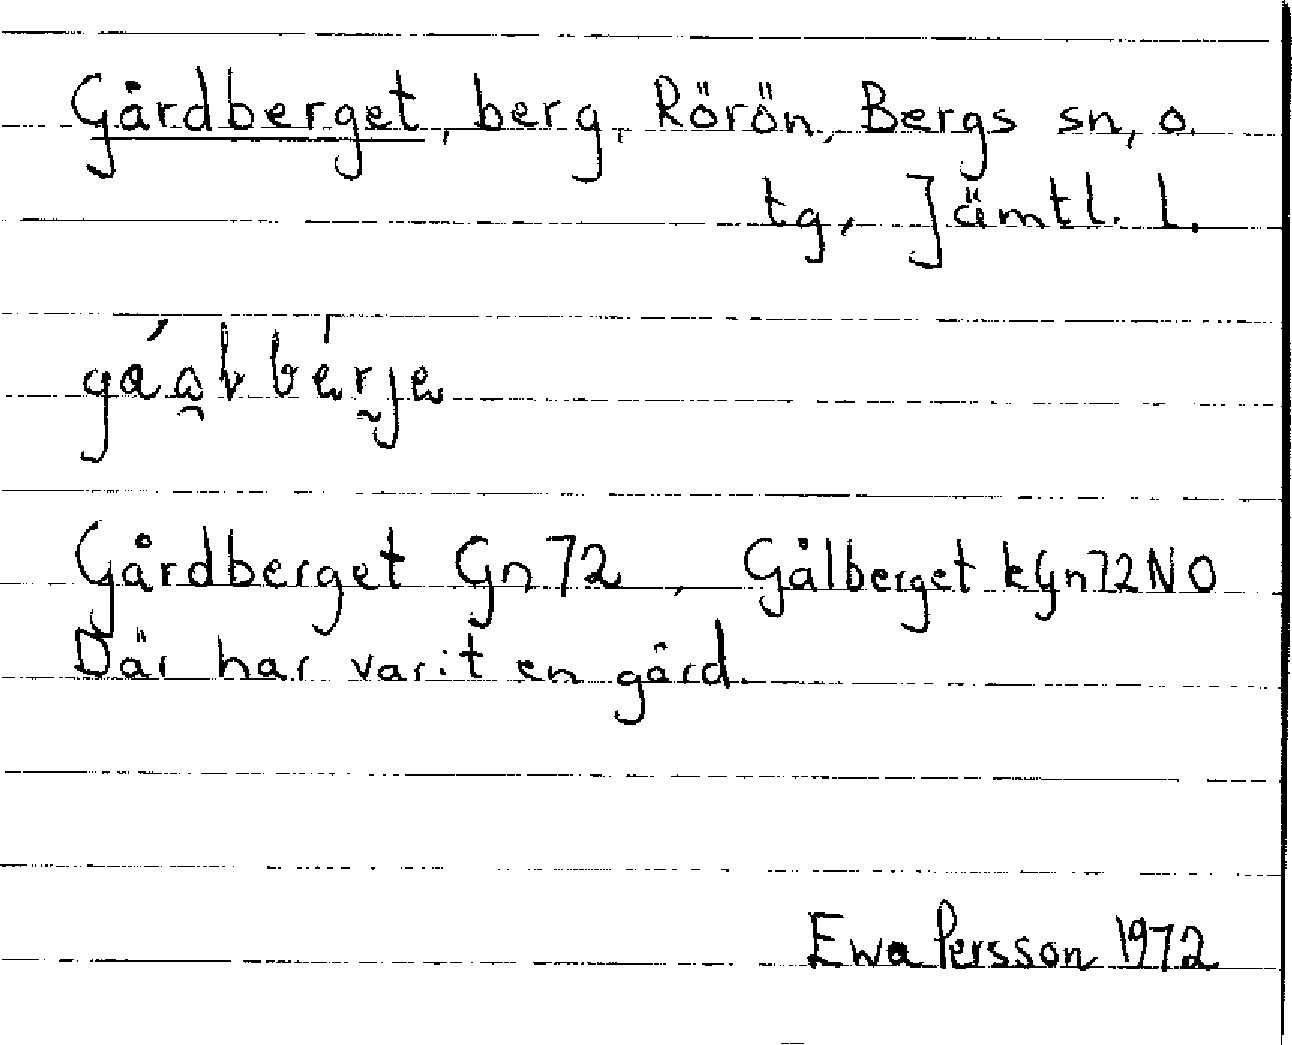 Gårdberget, berg, Rörön, Bergs sn, o.
tg, Jämtl. l.
Gårdberget Gn72, Gålberget kGn72NO
Där har varit en gård.
Ewa Persson 1972